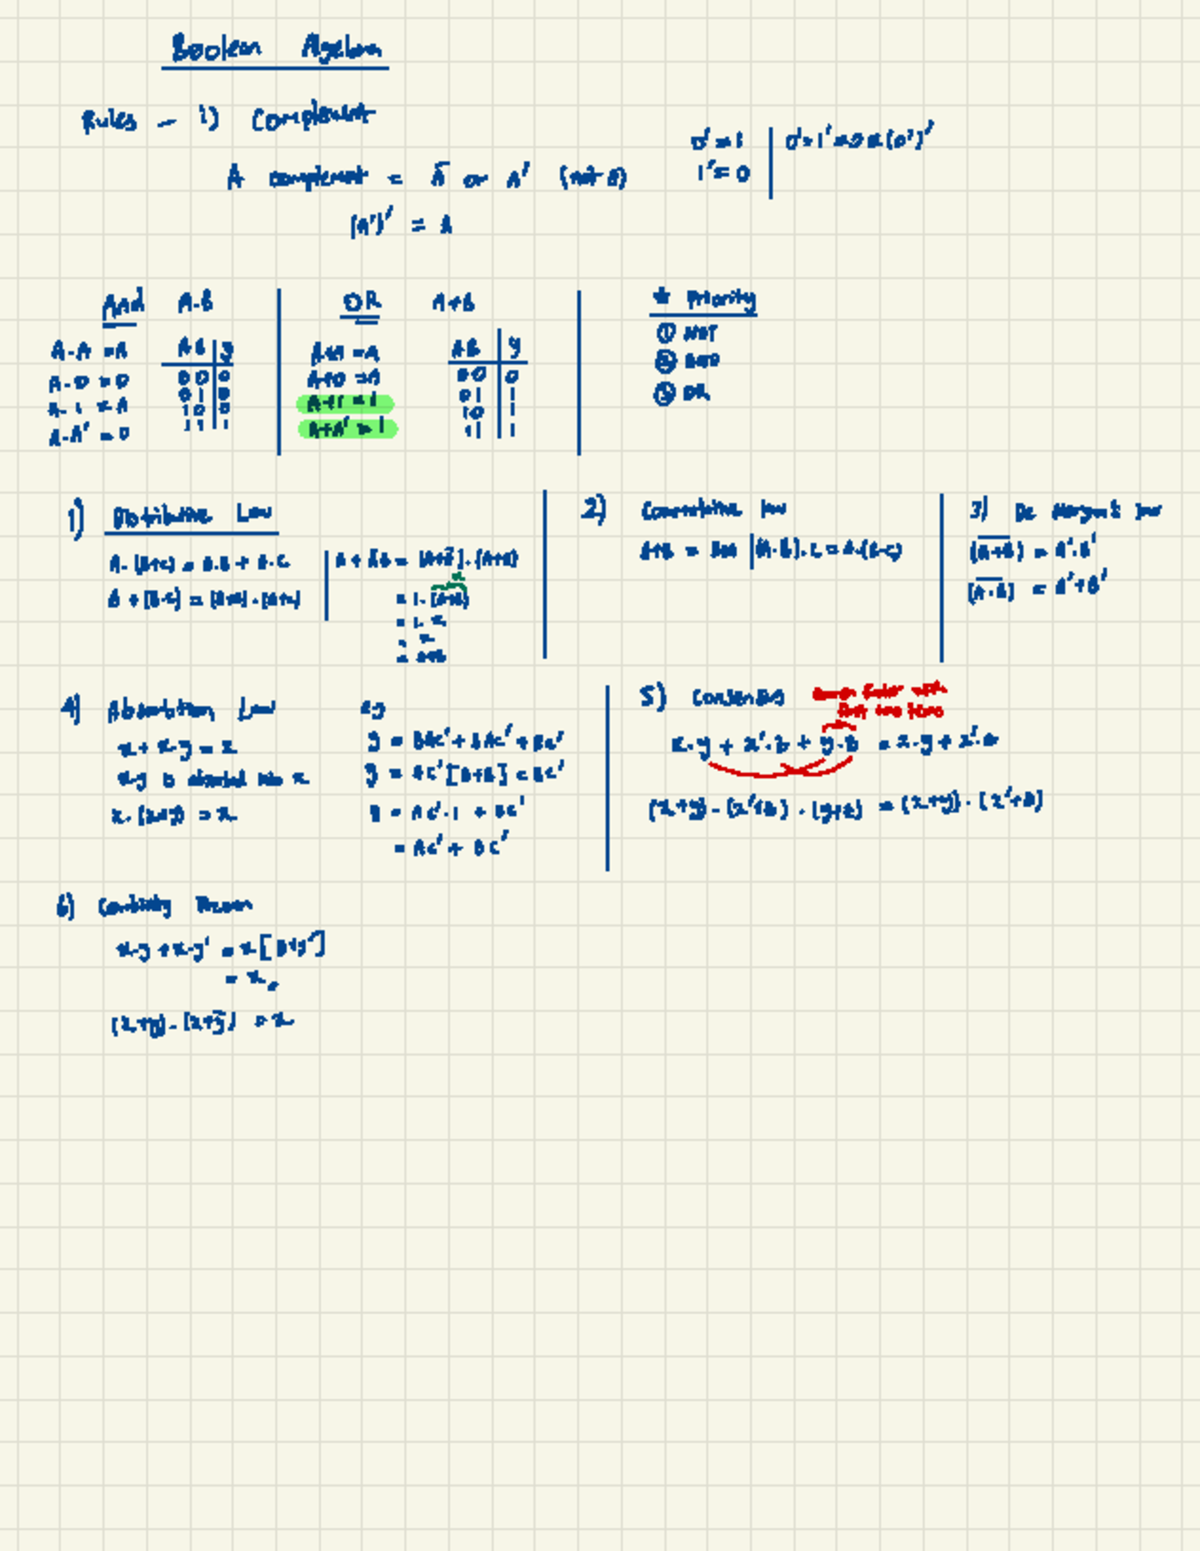 Boolean Algebra
Rules - 1) Complement
A complement = Ā or A' (not A)
(A')' = A
0' = 1
1' = 0
And A·B
A·A = A
A·0 = 0
A·1 = A
A·A' = 0
AB y
00 0
01 0
10 0
11 1
OR A+B
A+A = A
A+0 = A
A+1 = 1
A+A' = 1
AB y
00 0
01 1
10 1
11 1
* Priority
① NOT
② AND
③ OR
1) Distributive Law
A·(B+C) = A·B + A·C
A + ĀB = (A+Ā)·(A+B)
= 1·(A+B)
= 1·x
= x
= A+B
2)
(A·B)·C = A·(B·C)
3) De Morgan's law
(A+B) = A'·B'
(A·B) = A'+B'
4) Absorbtion Law
x + x·y = x
x·y is absorbed into x
x·(x+y) = x
eg
y = AC'·1 + BC'
= AC' + BC'
5) Consensus
first two terms
x·y + x'·z + y·z = x·y + x'·z
(x+y)·(x'+z)·(y+z) = (x+y)·(x'+z)
6) Combining Theorem
= x
(x+y)·(x+ȳ) = x